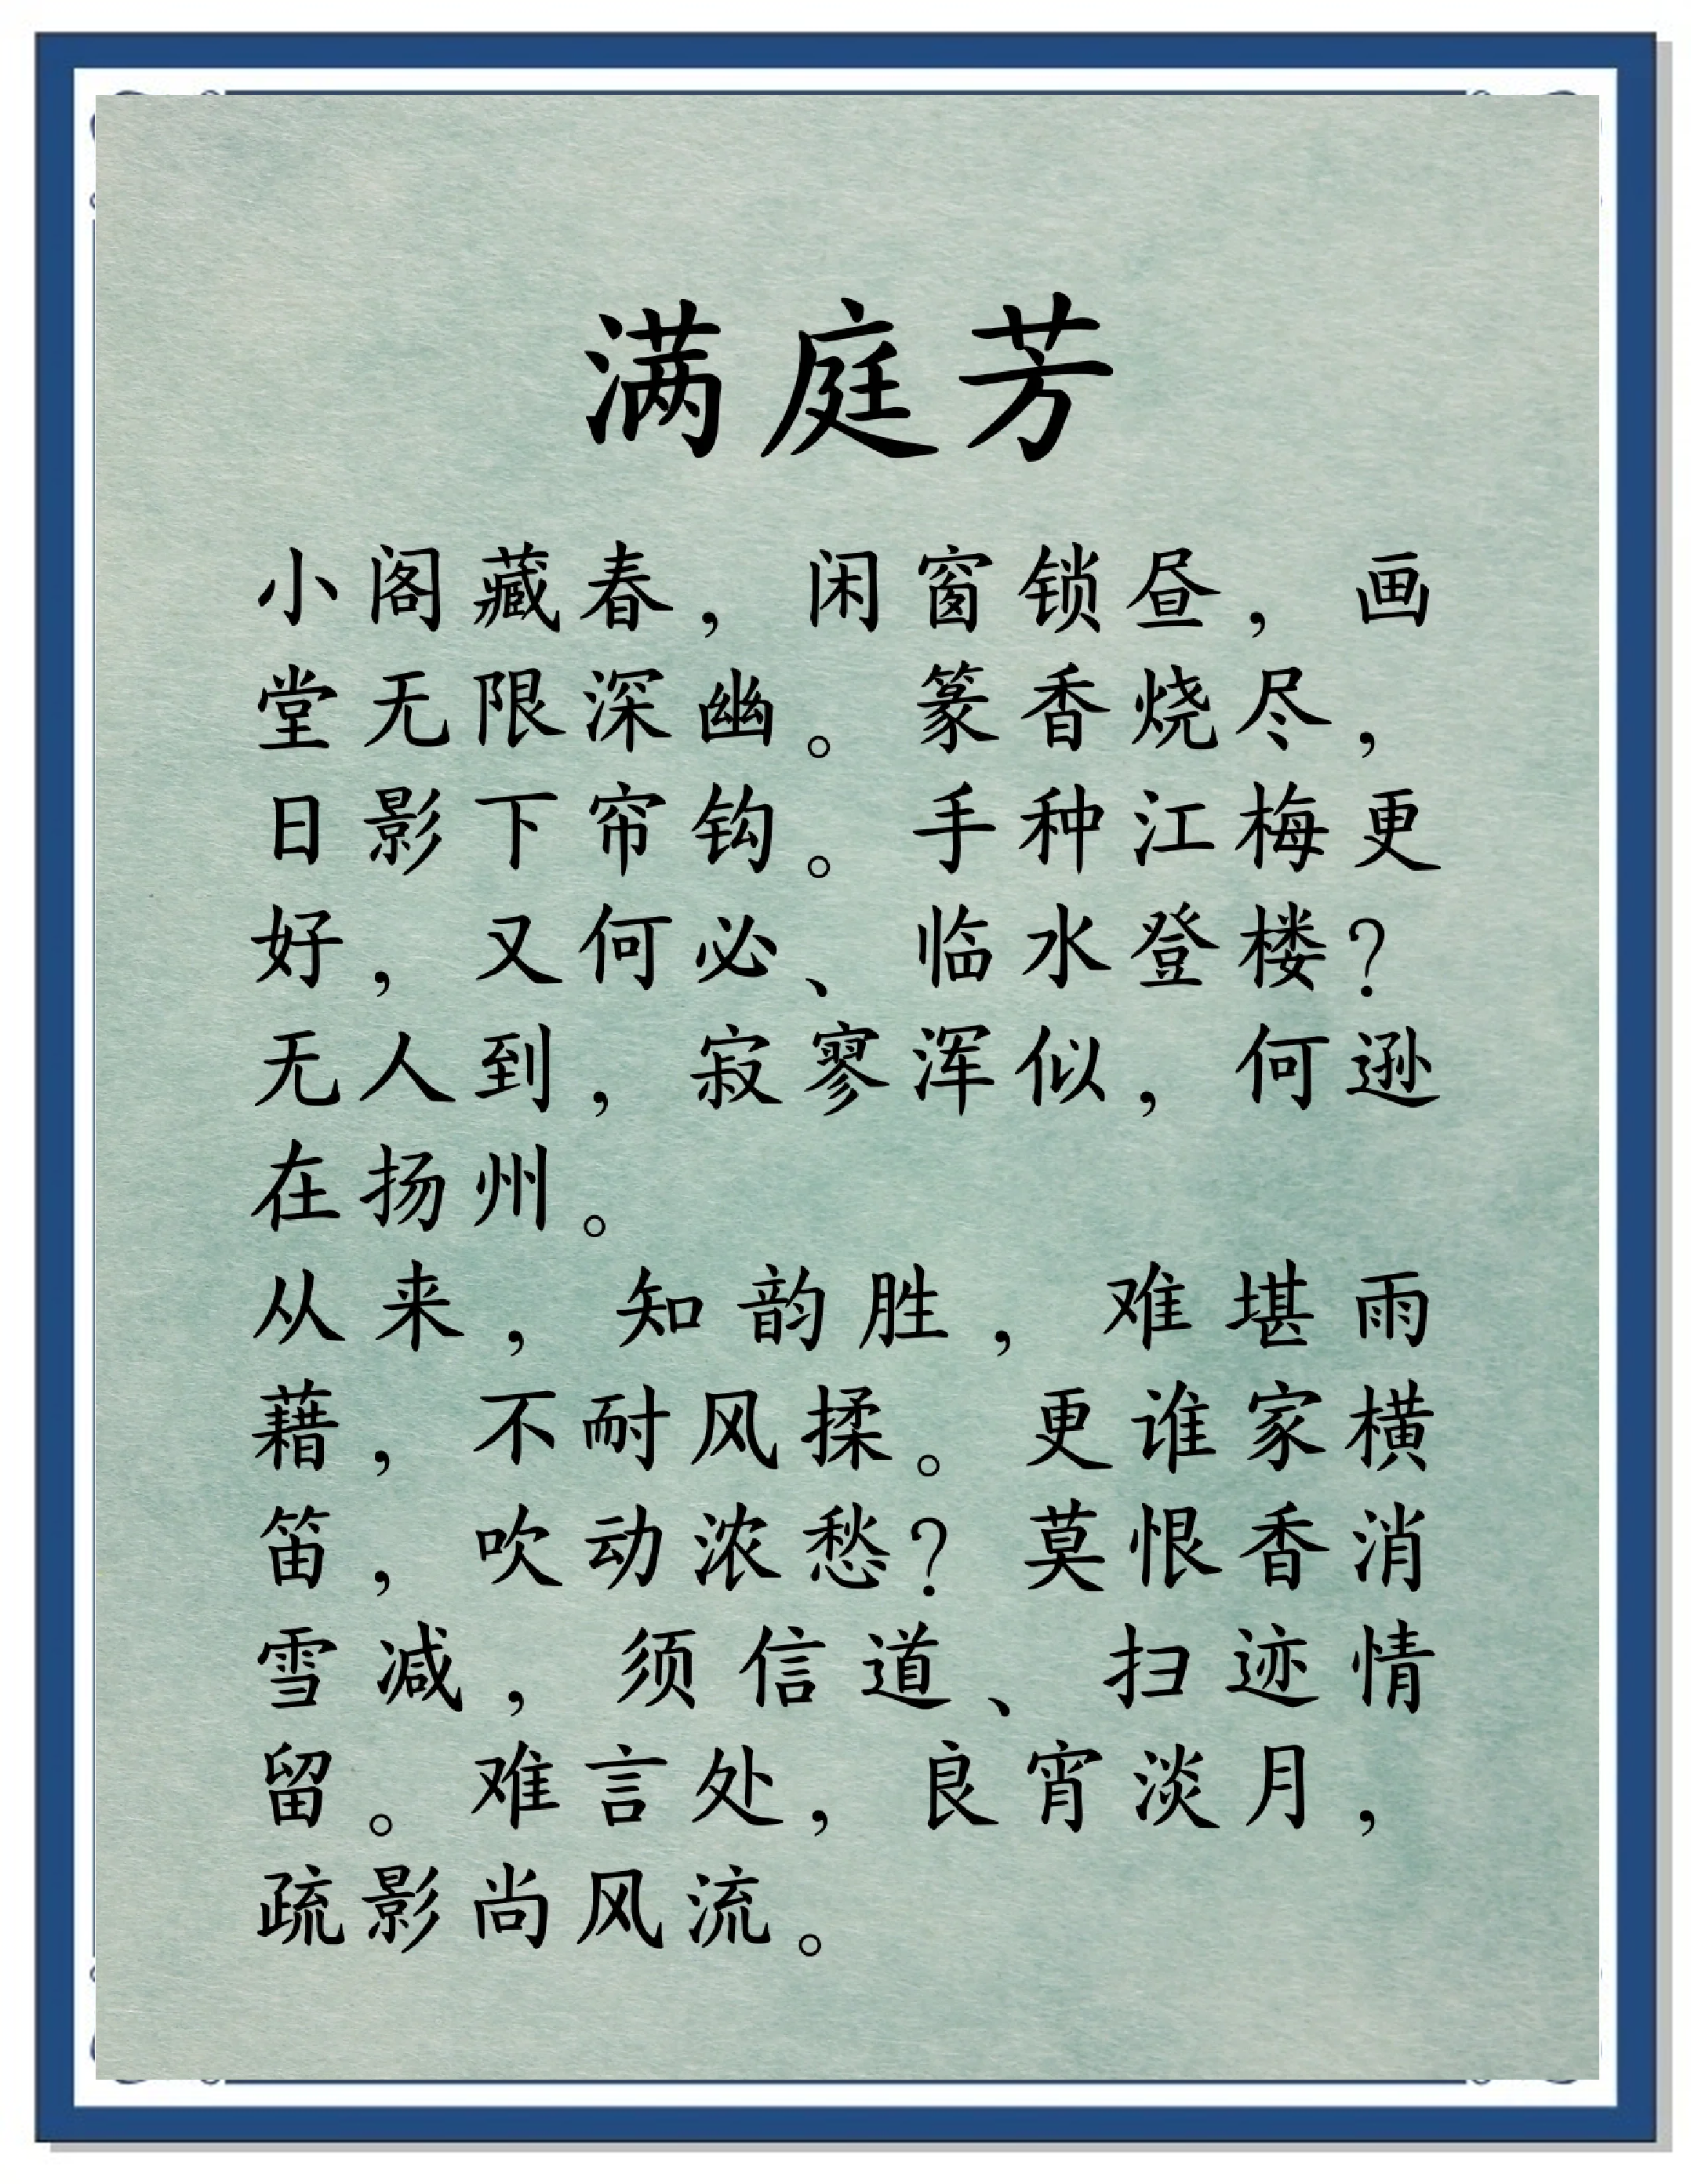 满庭芳
小阁藏春，闲窗锁昼，画
堂无限深幽。篆香烧尽，
日影下帘钩。手种江梅更
好，又何必、临水登楼？
无人到，寂寥浑似，何逊
在扬州。
从来，知韵胜，难堪雨
藉，不耐风揉。更谁家横
笛，吹动浓愁？莫恨香消
雪减，须信道、扫迹情
留。难言处，良宵淡月，
疏影尚风流。